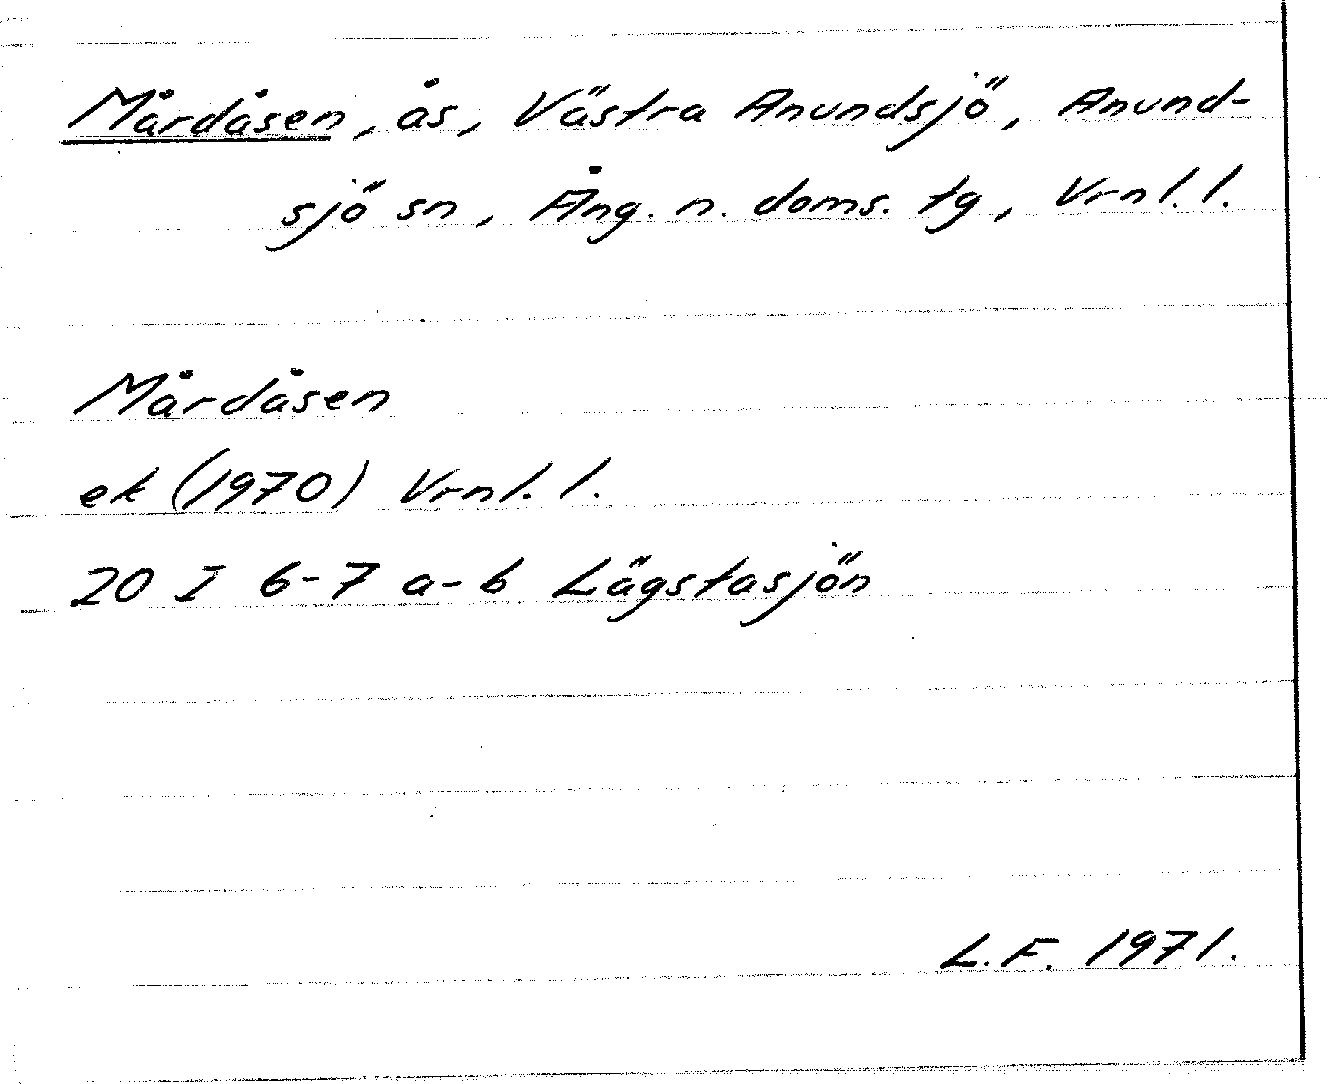 Mårdåsen, ås, Västra Anundsjö, Anund-
sjö sn, Ång. n. doms. tg, Vrnl. l.
Mårdåsen
ek (1970) Vrnl. l.
20 I 6-7 a-b Lägstasjön
L.F. 1971.